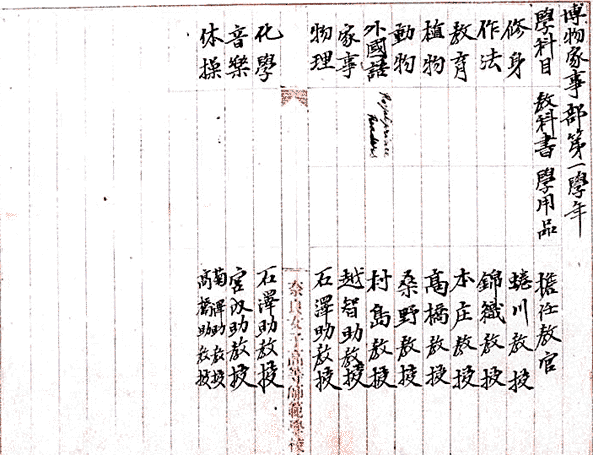 博物家事部第一學年
學科目 教科書 學用品 擔任教官
修身 蜷川教授
作法 錦織教授
教育 本庄教授
植物 高橋教授
動物 桑野教授
外國語 Readers 村島教授
家事 越智助教授
物理 石澤助教授
奈良女子高等師範學校
化學 石澤助教授
音樂 宮助教授
体操 菊澤助教授
高橋助教授